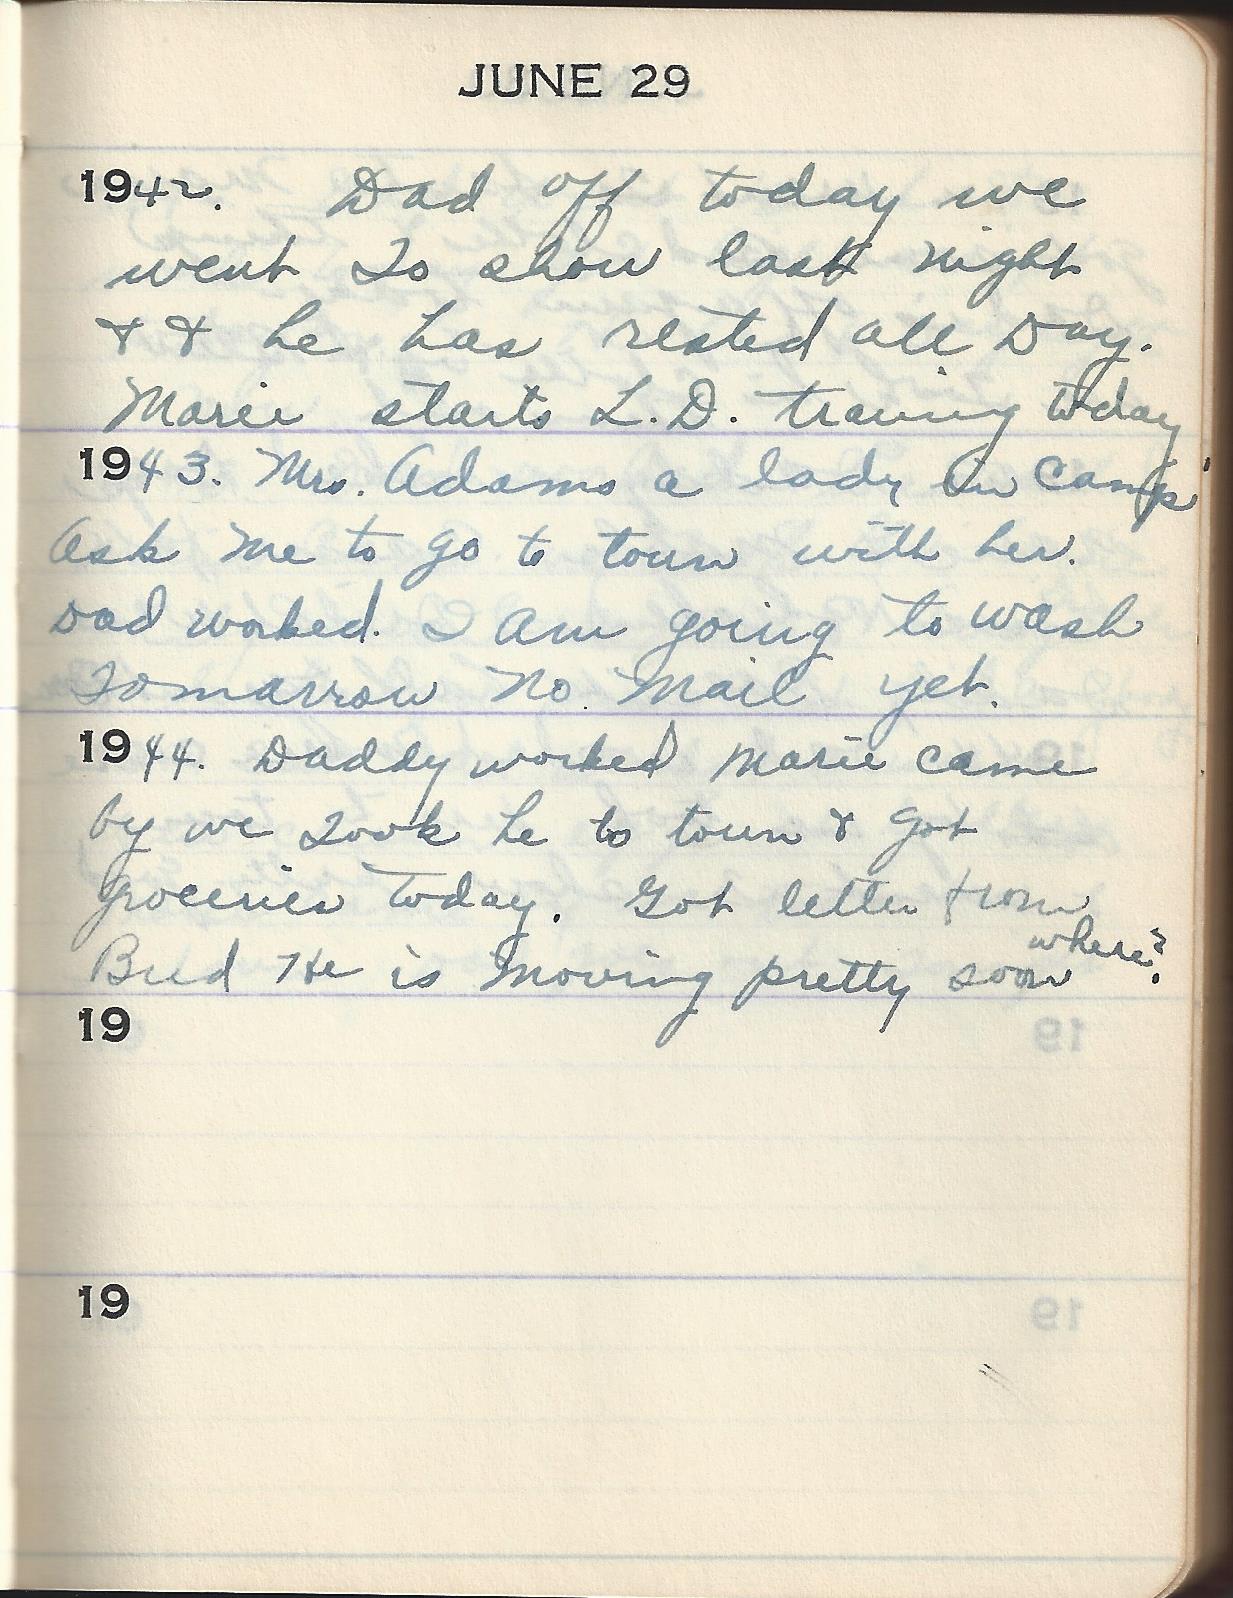 JUNE 29
1942. Dad off today we
went to show last night
& & he has rested all Day.
Marie starts L.D. training today
1943. Mrs. Adams a lady in Camp
Ask me to go to town with her.
Dad worked. I am going to wash
Tomarrow No Mail yet.
1944. Daddy worked Marie came
by we took he to town & got
groceries today. Got letter from
Bud He is moving pretty soon where?
19
19